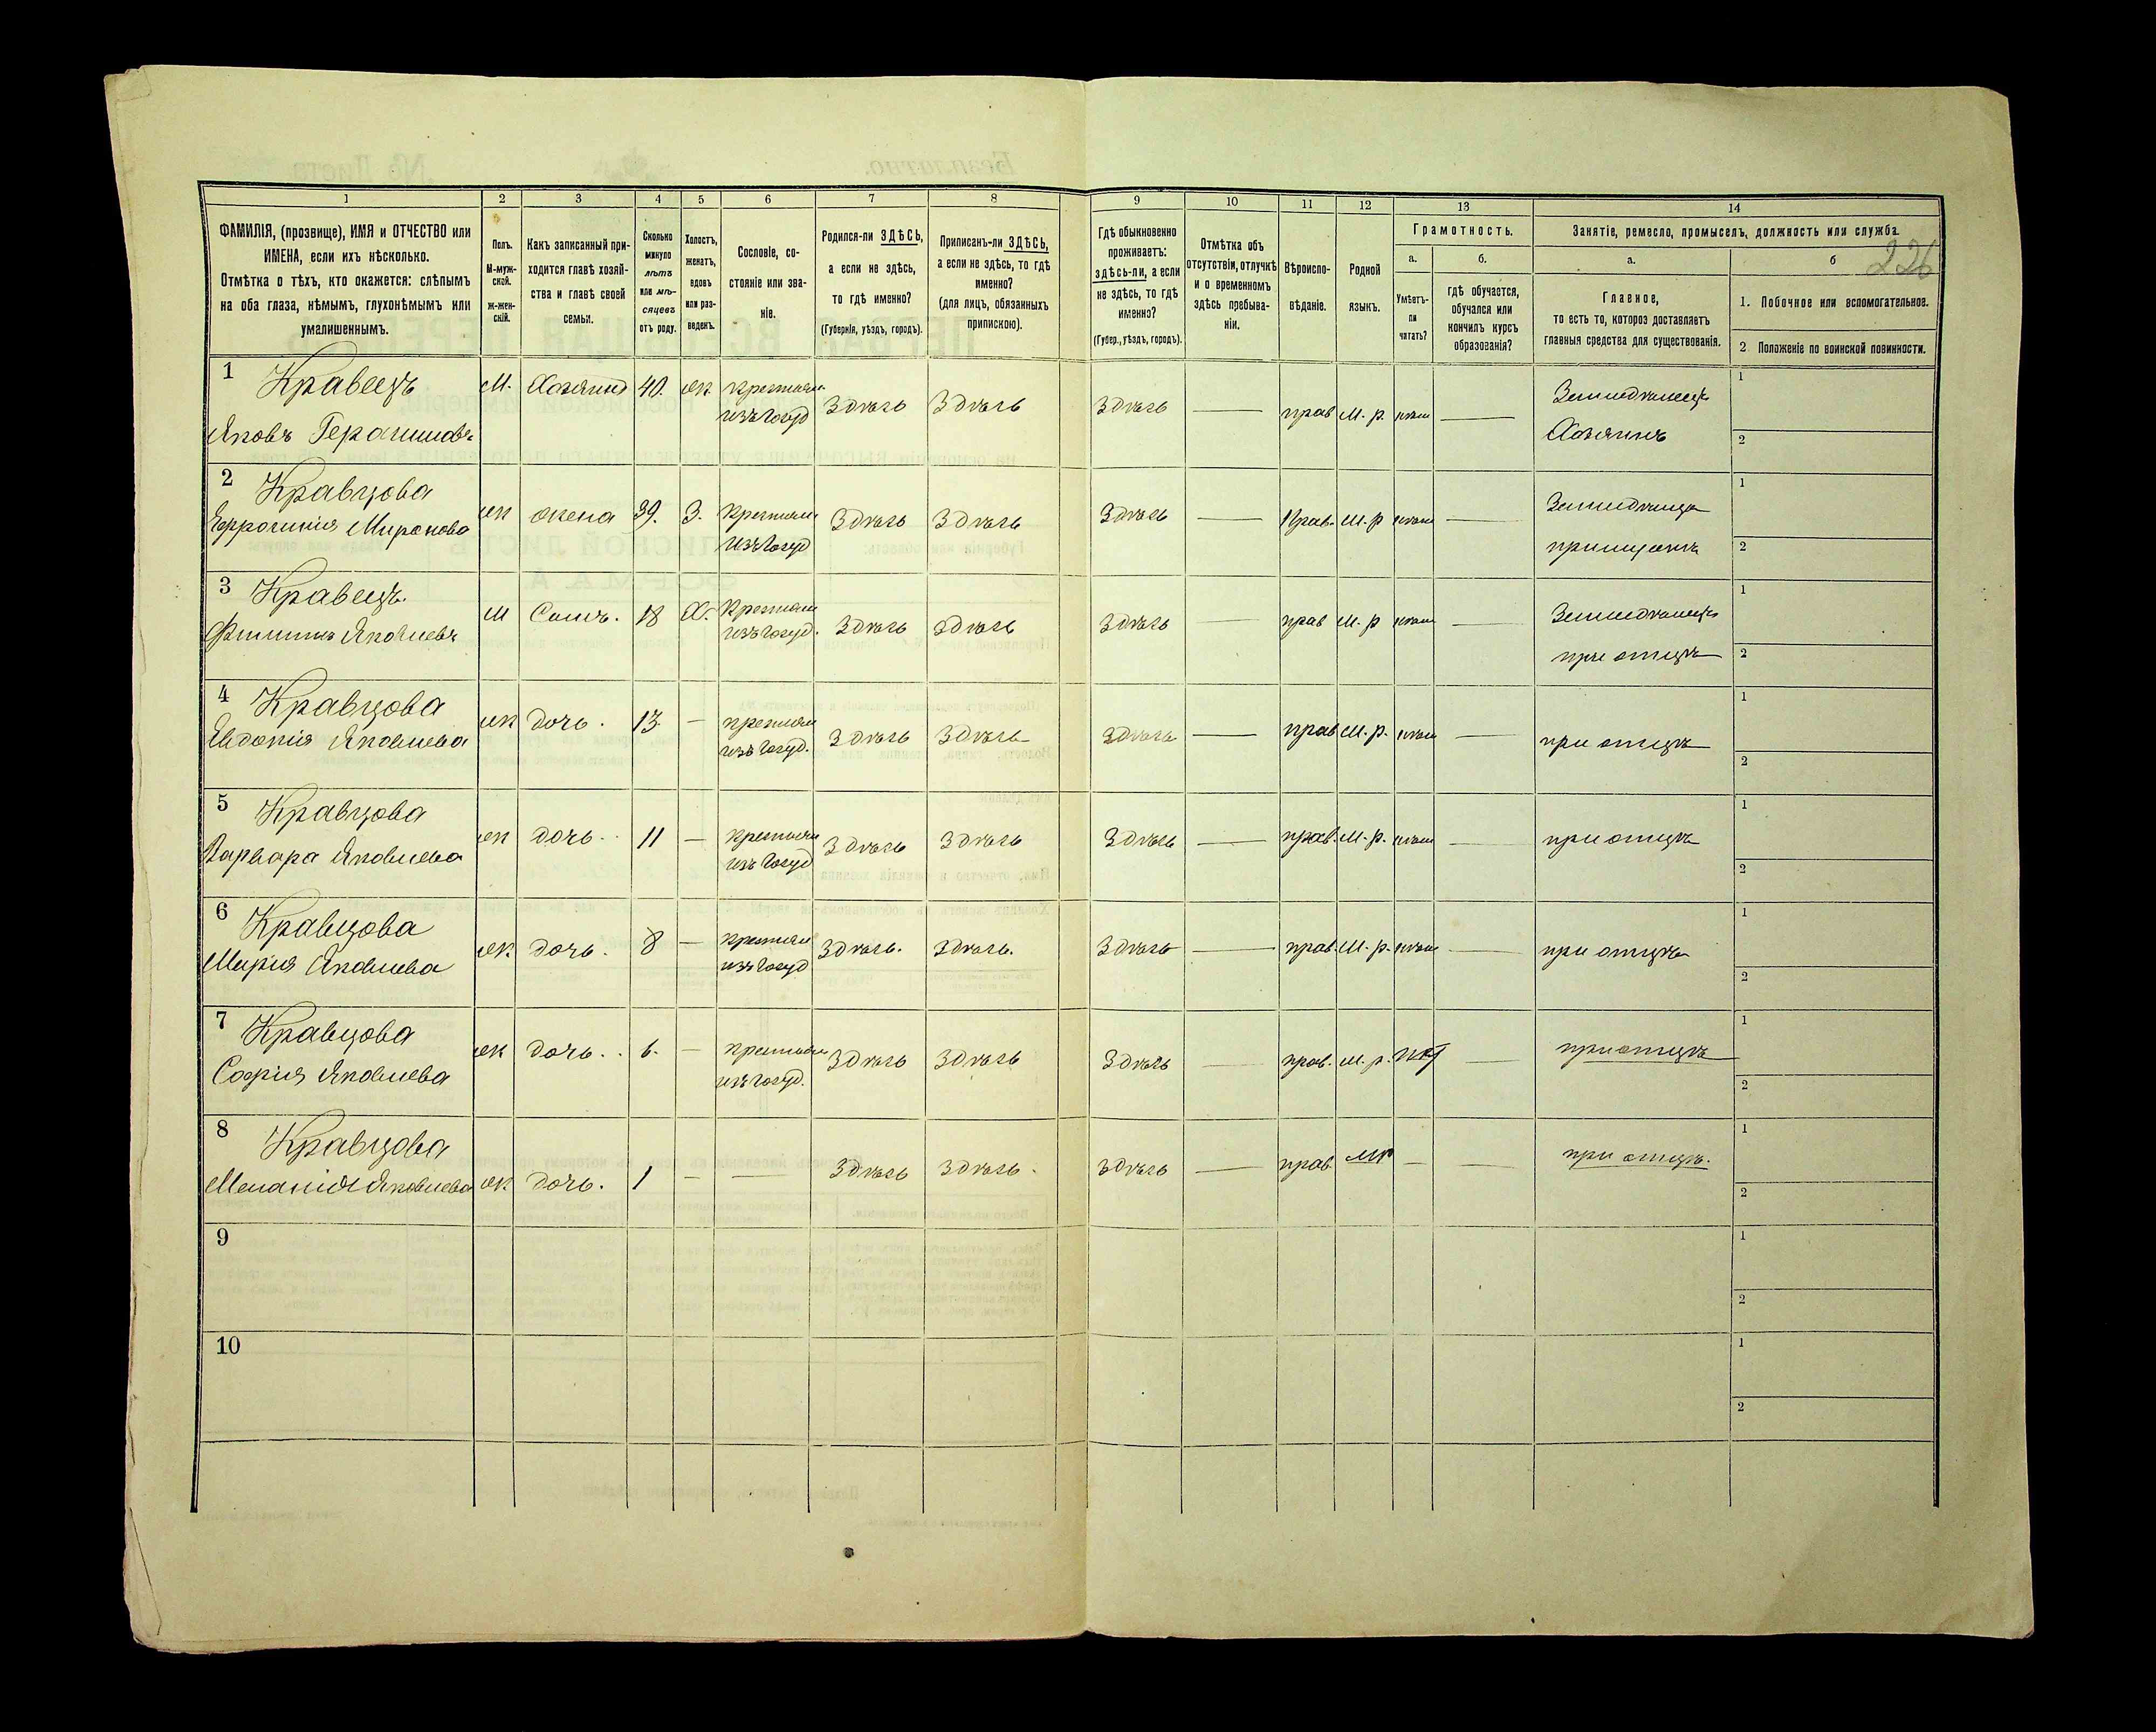 226
1 2 3 4 5 6 7 8 9 10 11 12 13 14
ФАМИЛІЯ, (прозвище), ИМЯ и ОТЧЕСТВО или
ИМЕНА, если ихъ нѣсколько.
Отмѣтка о тѣхъ, кто окажется: слѣпымъ
на оба глаза, нѣмымъ, глухонѣмымъ или
умалишеннымъ.
Полъ.
М-муж-
ской.
ж-жен-
скій.
Какъ записанный при-
ходится главѣ хозяй-
ства и главѣ своей
семьи.
Сколько
минуло
лѣтъ
или мѣ-
сяцевъ
отъ роду.
Холостъ,
женатъ,
вдовъ
или раз-
веденъ.
Сословіе, со-
стояніе или зва-
ніе.
Родился-ли ЗДѢСЬ,
а если не здѣсь,
то гдѣ именно?
(Губернія, уѣздъ, городъ).
Приписанъ-ли ЗДѢСЬ,
а если не здѣсь, то гдѣ
именно?
(для лицъ, обязанныхъ
припискою).
Гдѣ обыкновенно
проживаетъ:
здѣсь-ли, а если
не здѣсь, то гдѣ
именно?
(Губер., уѣздъ, городъ).
Отмѣтка объ
отсутствіи, отлучкѣ
и о временномъ
здѣсь пребыва-
ніи.
Вѣроиспо-
вѣданіе.
Родной
языкъ.
Грамотность.
а.
Умѣетъ-
ли
читать?
б.
гдѣ обучается,
обучался или
кончилъ курсъ
образованія?
Занятіе, ремесло, промыселъ, должность или служба.
а.
Главное,
то есть то, которое доставляетъ
главныя средства для существованія.
б
1. Побочное или вспомогательное.
2 Положеніе по воинской повинности.
1 Кравецъ М. Хозяинъ 40. ж. крестьян. Здѣсь Здѣсь Здѣсь — прав М. р. — Земледѣлецъ 1
Яковъ Герасимовъ изъ госуд Хозяинъ 2
2 Кравцова жена 39. З. крестьян Здѣсь Здѣсь Здѣсь — Прав. М. р — 1
Мироновa изъ госуд 2
3 Кравецъ. М Сынъ. 18 Х. Крестьян Здѣсь Здѣсь Здѣсь — прав М. р — Земледѣлецъ 1
Филиппъ Яковлевъ изъ госуд. при отцѣ 2
4 Кравцова ж дочь. 13 — крестьян Здѣсь Здѣсь Здѣсь — прав М. р. — при отцѣ 1
Евдокія Яковлева изъ госуд. 2
5 Кравцова ж дочь. 11 — крестьян Здѣсь Здѣсь Здѣсь — прав. М. р. — при отцѣ 1
Варвара Яковлева изъ госуд 2
6 Кравцова ж дочь. 8 — крестьян Здѣсь. Здѣсь. Здѣсь — прав. М. р. — при отцѣ 1
Марія Яковлева изъ госуд 2
7 Кравцова ж дочь. 6. — крестьян Здѣсь Здѣсь Здѣсь — прав. м. р. нѣт — при отцѣ 1
Софія Яковлева изъ госуд. 2
8 Кравцова ж дочь. 1 — — Здѣсь Здѣсь. здѣсь — прав. мр — — при отцѣ. 1
Меланія Яковлева 2
9 1
2
10 1
2